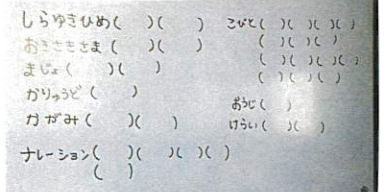 しらゆきひめ(　)(　)
おきさきさま(　)(　)
まじょ(　)(　)
かりゅうど(　)
かがみ(　)(　)
ナレーション(　)(　)(　)(　)
(　)
こびと(　)(　)(　)(　)
(　)(　)(　)
(　)(　)(　)(　)
(　)(　)(　)
おうじ(　)
けらい(　)(　)